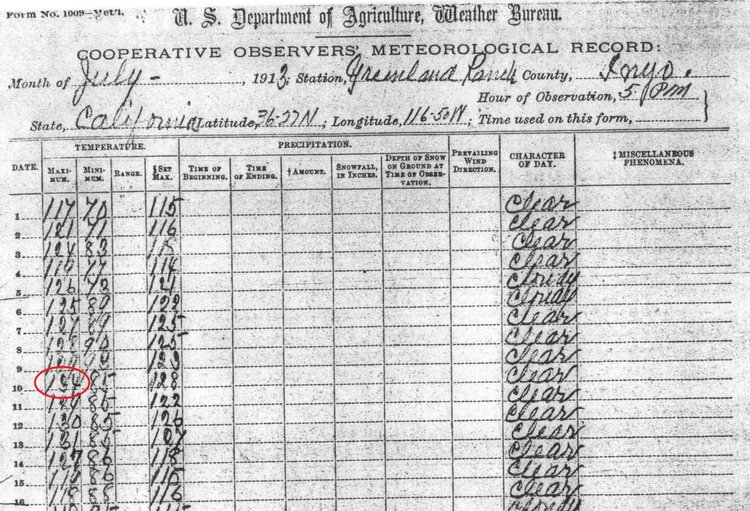 Form No. 1009—Met'l.
U. S. Department of Agriculture, Weather Bureau.
COOPERATIVE OBSERVERS' METEOROLOGICAL RECORD:
Month of July, 1913, Station, Greenland Ranch County, Inyo.
Hour of Observation, 5 PM
State, California Latitude, 36-27N; Longitude, 116-50W; Time used on this form,
DATE. TEMPERATURE. PRECIPITATION. PREVAILING WIND DIRECTION. CHARACTER OF DAY. ‡MISCELLANEOUS PHENOMENA.
MAXIMUM. MINIMUM. RANGE. §SET MAX. TIME OF BEGINNING. TIME OF ENDING. †AMOUNT. SNOWFALL, IN INCHES. DEPTH OF SNOW ON GROUND AT TIME OF OBSERVATION.
1 117 70 115 Clear
2 121 71 116 Clear
3 124 83 115 Clear
4 77 114 Clear
5 126 121 Cloudy
6 125 89 122 Cloudy
7 127 89 125 Clear
8 90 125 Clear
9 123 Clear
10 134 85 128 Clear
11 129 86 122 Clear
12 130 85 126 Clear
13 131 85 127 Clear
14 127 86 118 Clear
15 Clear
16 118 88 116 Clear
Cloudy